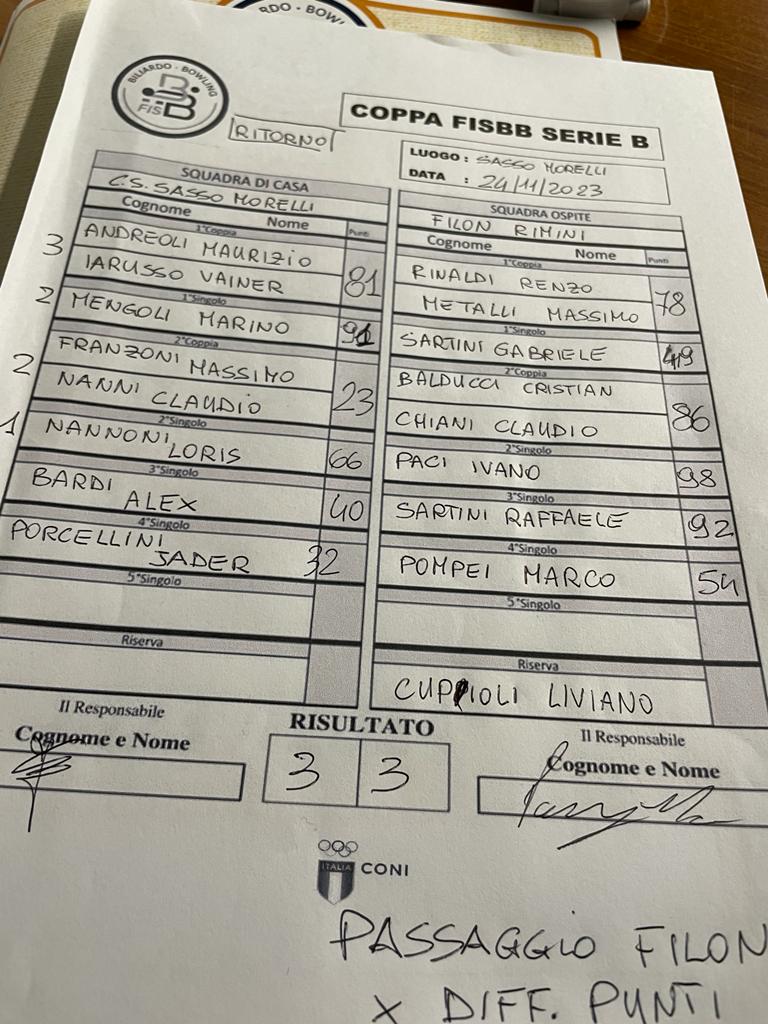 RDO - BOWL
BILIARDO - BOWLING
FISBB
RITORNO
COPPA FISBB SERIE B
LUOGO : SASSO MORELLI
DATA : 24/11/2023
SQUADRA DI CASA
C.S. SASSO MORELLI
Cognome Nome Punti
1°Coppia
3 ANDREOLI MAURIZIO
IARUSSO VAINER 81
1°Singolo
2 MENGOLI MARINO 91
2°Coppia
FRANZONI MASSIMO
2 NANNI CLAUDIO 23
2°Singolo
1 NANNONI LORIS 66
3°Singolo
BARDI ALEX 40
4°Singolo
PORCELLINI JADER 32
5°Singolo
Riserva
SQUADRA OSPITE
FILON RIMINI
Cognome Nome Punti
1°Coppia
RINALDI RENZO
METALLI MASSIMO 78
1°Singolo
SARTINI GABRIELE 49
2°Coppia
BALDUCCI CRISTIAN
CHIANI CLAUDIO 86
2°Singolo
PACI IVANO 98
3°Singolo
SARTINI RAFFAELE 92
4°Singolo
POMPEI MARCO 54
5°Singolo
Riserva
CUPPIOLI LIVIANO
Il Responsabile
Cognome e Nome
RISULTATO
3 3
Il Responsabile
Cognome e Nome
ITALIA
CONI
PASSAGGIO FILON
X DIFF. PUNTI